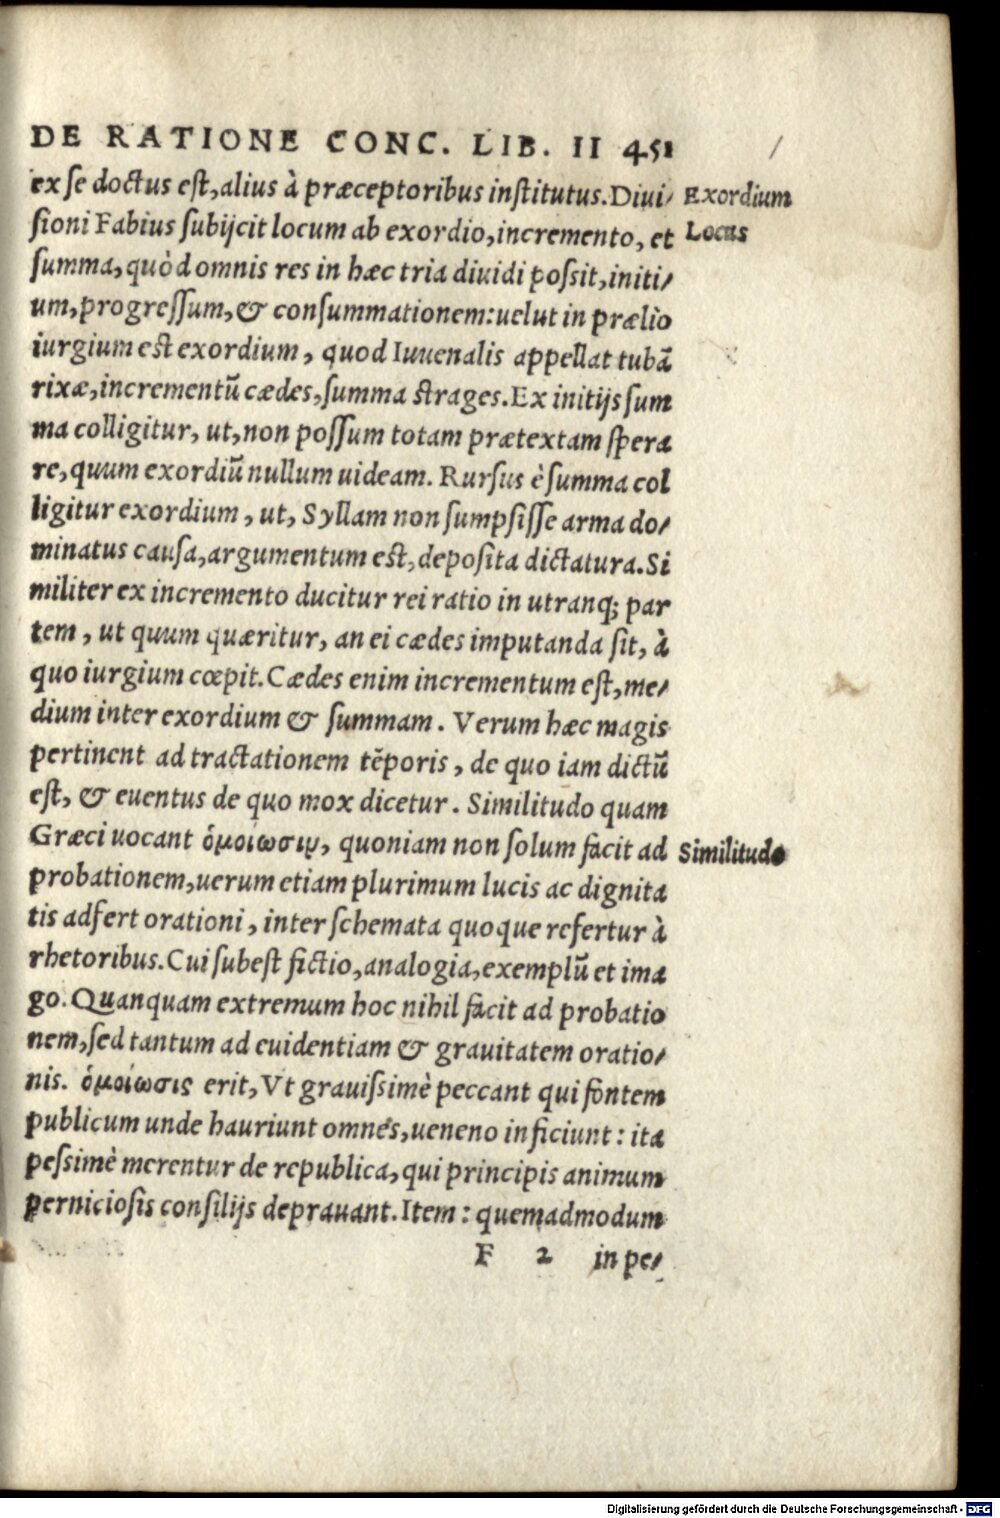 DE RATIONE CONC. LIB. II 451
ex se doctus est, alius à præceptoribus institutus. Diui- Exordium
sioni Fabius subijcit locum ab exordio, incremento, et Locus
summa, quòd omnis res in hæc tria diuidi possit, initi-
um, progressum, & consummationem: uelut in prælio
iurgium est exordium, quod Iuuenalis appellat tubã
rixæ, incrementũ cædes, summa strages. Ex initijs sum
ma colligitur, ut, non possum totam prætextam spera
re, quum exordiũ nullum uideam. Rursus è summa col
ligitur exordium, ut, Syllam non sumpsisse arma do-
minatus causa, argumentum est, deposita dictatura. Si
militer ex incremento ducitur rei ratio in utranq; par
tem, ut quum quæritur, an ei cædes imputanda sit, à
quo iurgium cœpit. Cædes enim incrementum est, me-
dium inter exordium & summam. Verum hæc magis
pertinent ad tractationem tẽporis, de quo iam dictũ
est, & euentus de quo mox dicetur. Similitudo quam
Græci uocant ὁμοίωσιν, quoniam non solum facit ad Similitudo
probationem, uerum etiam plurimum lucis ac dignita
tis adfert orationi, inter schemata quoque refertur à
rhetoribus. Cui subest fictio, analogia, exemplũ et ima
go. Quanquam extremum hoc nihil facit ad probatio
nem, sed tantum ad euidentiam & grauitatem oratio-
nis. ὁμοίωσις erit, Vt grauissimè peccant qui fontem
publicum unde hauriunt omnes, ueneno inficiunt: ita
pessimè merentur de republica, qui principis animum
perniciosis consilijs deprauant. Item: quemadmodum
F 2 in pe-
Digitalisierung gefördert durch die Deutsche Forschungsgemeinschaft - DFG